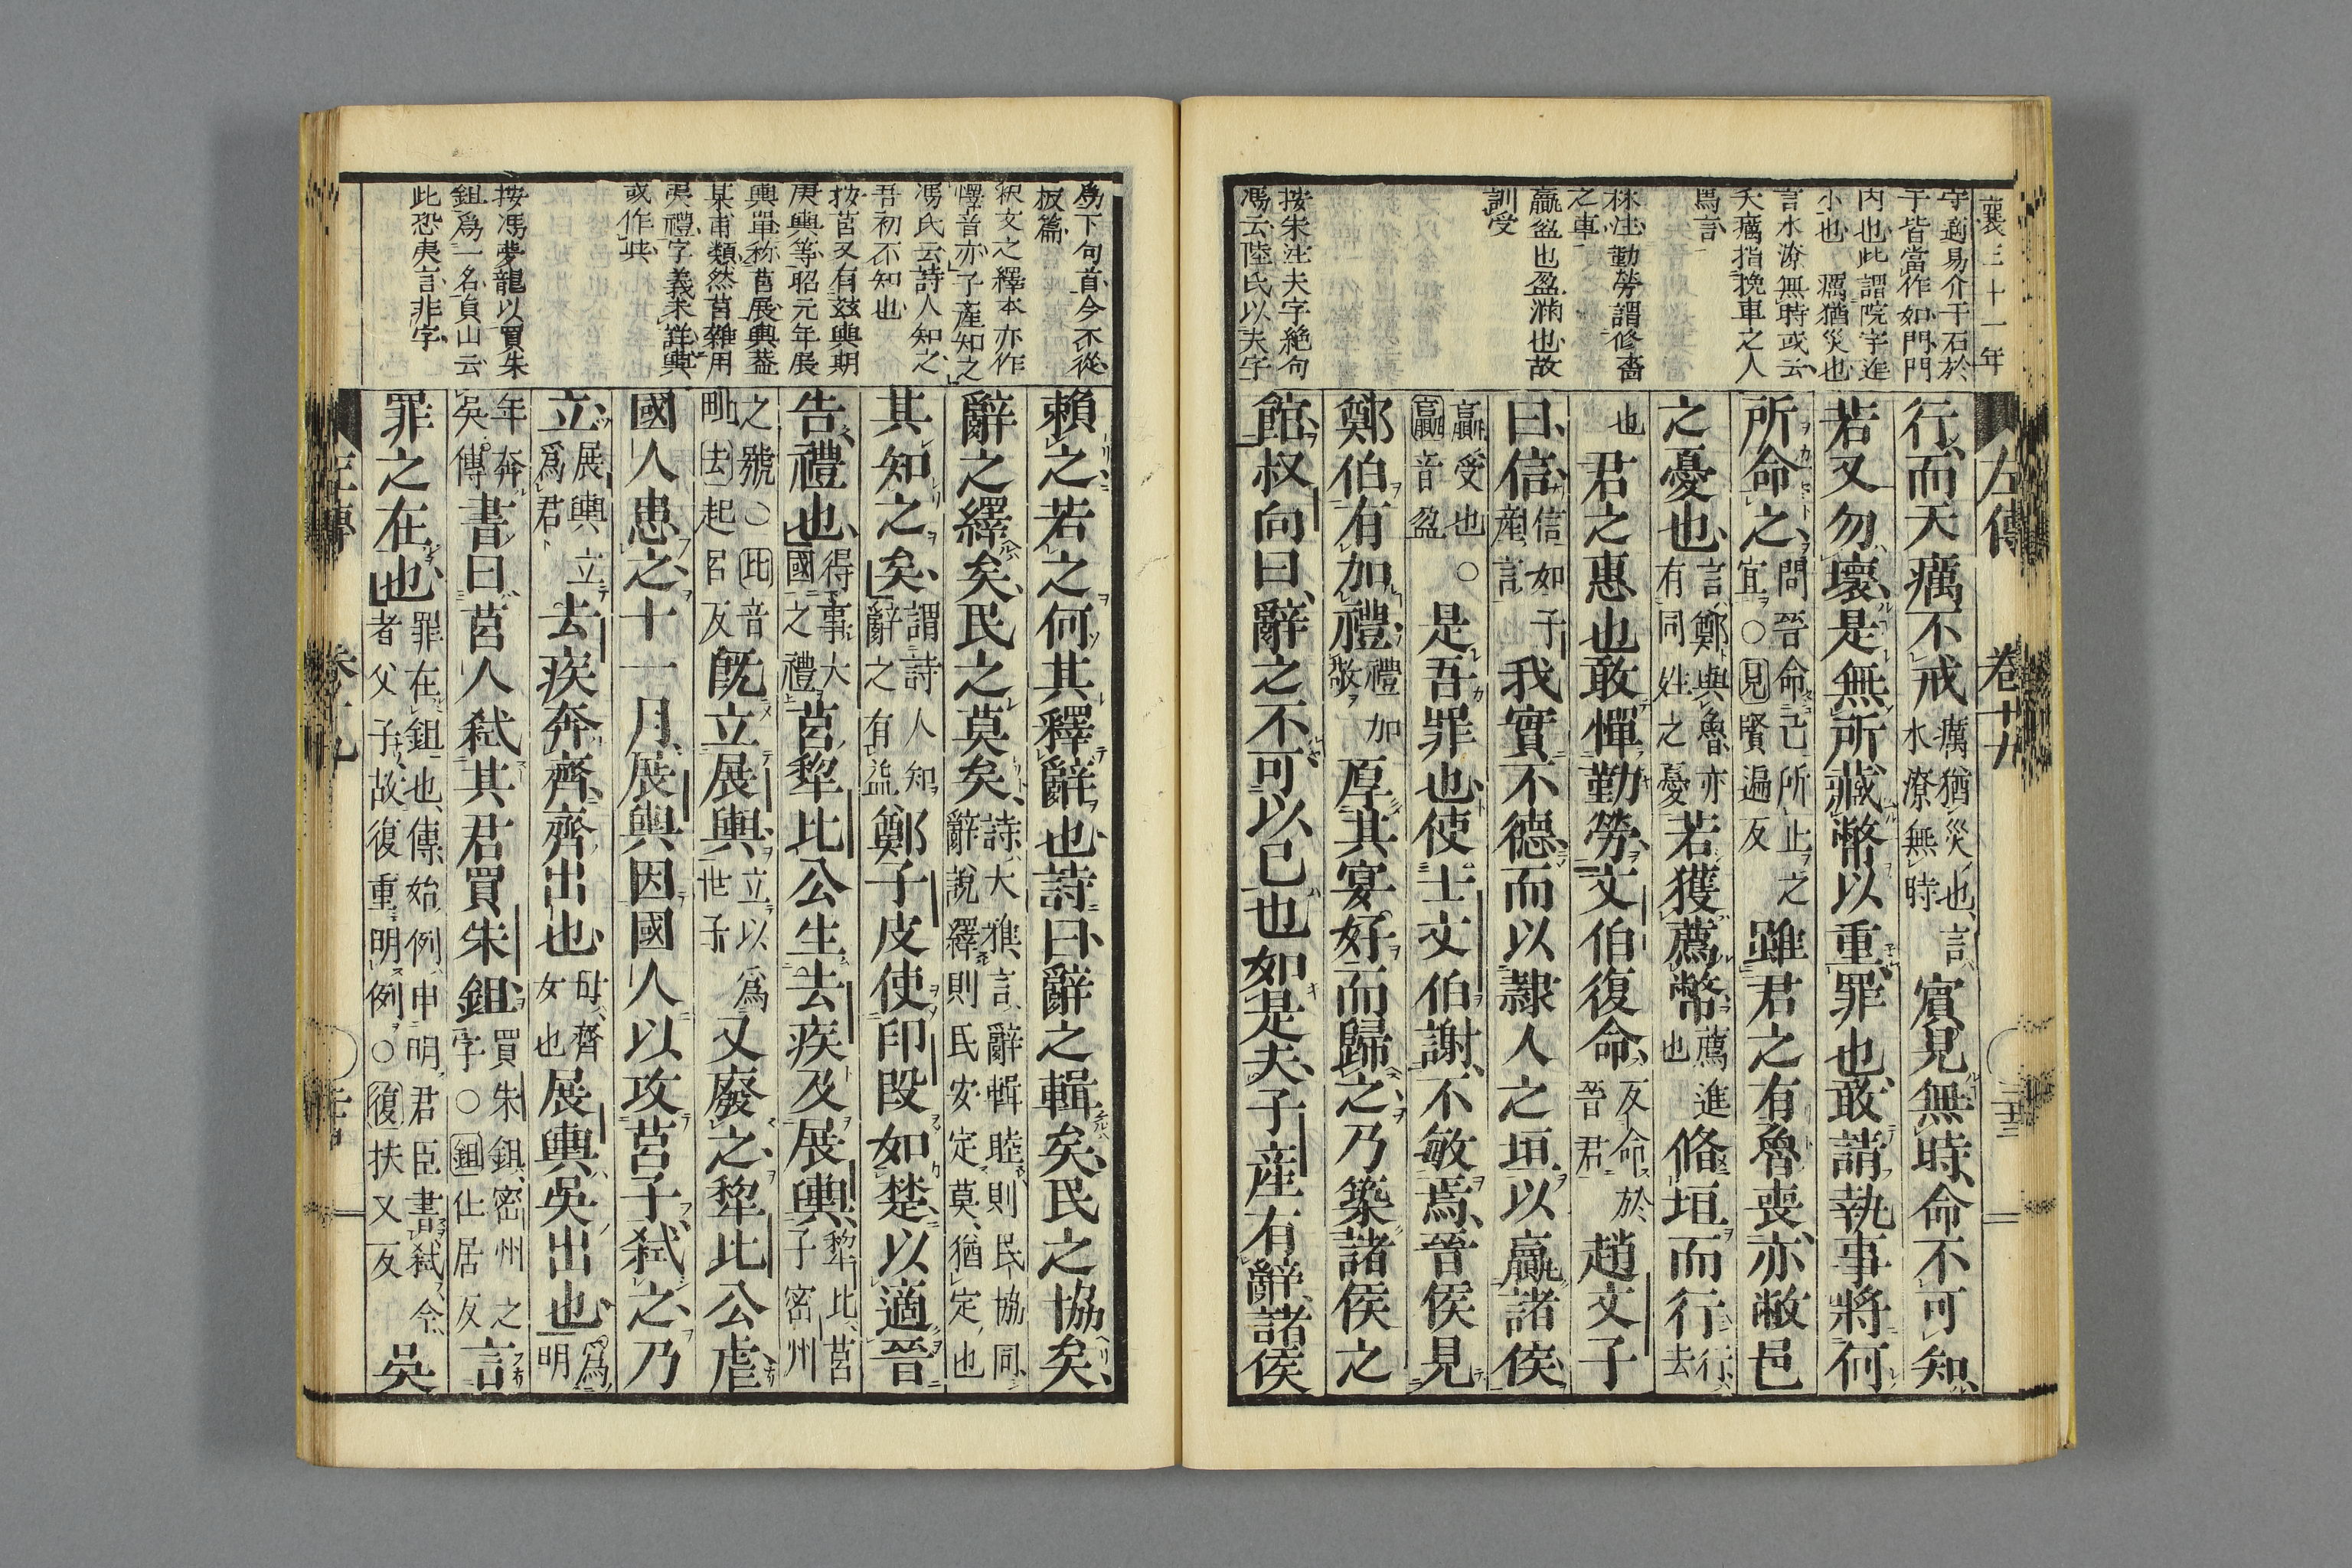 襄三十一年
左傳 卷十九
字適易介于石於
于皆當作如門門
内也此謂院宇進
小也 癘猶災也
言水潦無時或云
夭癘指挽車之人
馬言
林注勤勞謂修啬
之車
贏盈也盈滿也故
訓受
按朱注夫字絶句
馮云陸氏以夫字
行而天癘不戒癘猶災也言水潦無時賓見無時命不可知
若又勿壞是無所藏幣以重罪也敢請執事將何
所命之問晉命己所止之宜○見賢遍反雖君之有魯喪亦敝邑
之憂也言鄭與魯亦有同姓之憂若獲薦幣薦進也脩垣而行行去
也君之惠也敢憚勤勞文伯復命反命於晉君趙文子
曰信信如子産言也我實不德而以隷人之垣以贏諸侯
贏受也○贏音盈是吾罪也使士文伯謝不敏焉晉侯見
鄭伯有加禮禮加敬厚其宴好而歸之乃築諸侯之
館叔向曰辭之不可以已也如是夫子産有辭諸侯
爲下句首今不從
板篇
釈文之繹本亦作
懌音亦子產知之
馮氏云詩人知之
吾初不知也
按莒又有茲輿期
庚輿等昭元年展
輿單称莒展輿葢
某甫類然莒雜用
夷禮字義未詳輿
或作與
按馮夢龍以買朱
鉏爲一名貞山云
此恐夷言非字
賴之若之何其釋辭也詩曰辭之輯矣民之協矣
辭之繹矣民之莫矣詩大雅言辭輯睦則民協同辭說繹則民安定莫猶定也
其知之矣謂詩人知辭之有益鄭子皮使印段如楚以適晉
告禮也得事大國之禮莒犂比公生去疾及展輿犂比莒子密州
之號○比音毗去起呂反既立展輿立以爲世子又廢之犂比公虐
國人患之十一月展輿因國人以攻莒子弑之乃
立展輿立爲君去疾奔齊齊出也母齊女也展輿吳出也爲明
年奔吳傳書曰莒人弑其君買朱鉏買朱鉏密州之字○鉏仕居反言
罪之在也罪在鉏也傳始例申明君臣書弑今者父子故復重明例○復扶又反吳